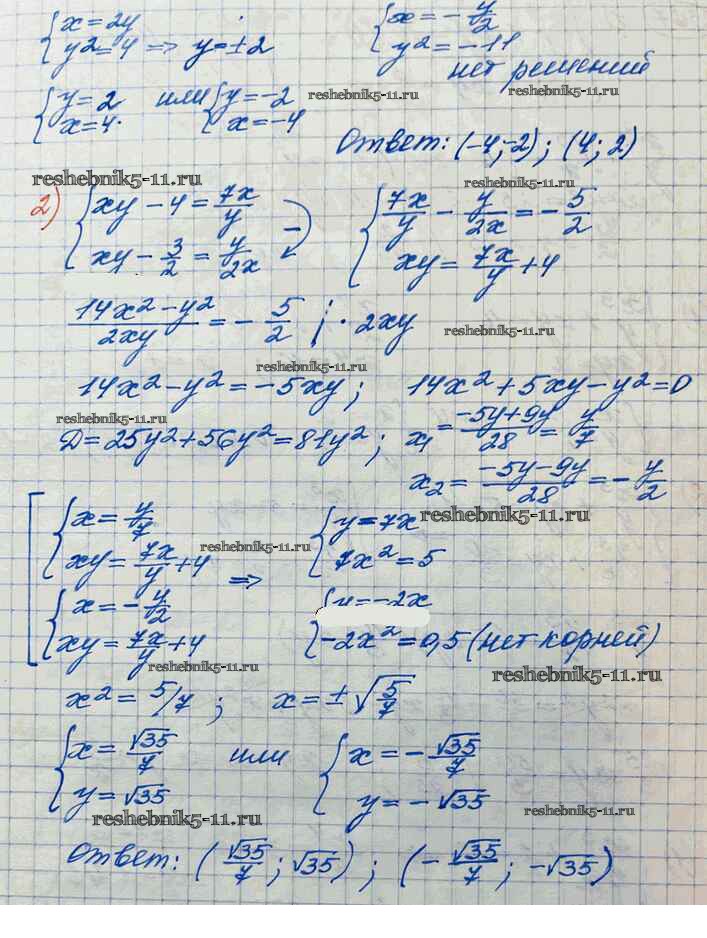 {x = 2y
{y² = 4 => y = ±2
{x = -y/2
{y² = -11
нет решений
{y = 2 или {y = -2
{x = 4. {x = -4
reshebnik5-11.ru
reshebnik5-11.ru
Ответ: (-4; -2); (4; 2)
reshebnik5-11.ru
reshebnik5-11.ru
2) {xy - 4 = 7x/y
{xy - 3/2 = y/2x
-
{7x/y - y/2x = -5/2
{xy = 7x/y + 4
(14x² - y²)/2xy = -5/2 | · 2xy
reshebnik5-11.ru
reshebnik5-11.ru
14x² - y² = -5xy; 14x² + 5xy - y² = 0
reshebnik5-11.ru
D = 25y² + 56y² = 81y²; x₁ = (-5y + 9y)/28 = y/7
x₂ = (-5y - 9y)/28 = -y/2
reshebnik5-11.ru
[{x = y/7
{xy = 7x/y + 4
reshebnik5-11.ru
=>
{y = 7x
{7x² = 5
{x = -y/2
{xy = 7x/y + 4
{y = -2x
{-2x² = 0,5 (нет корней)
reshebnik5-11.ru
reshebnik5-11.ru
x² = 5/7; x = ±√(5/7)
{x = √35/7 или {x = -√35/7
{y = √35 {y = -√35
reshebnik5-11.ru
reshebnik5-11.ru
Ответ: (√35/7; √35); (-√35/7; -√35)